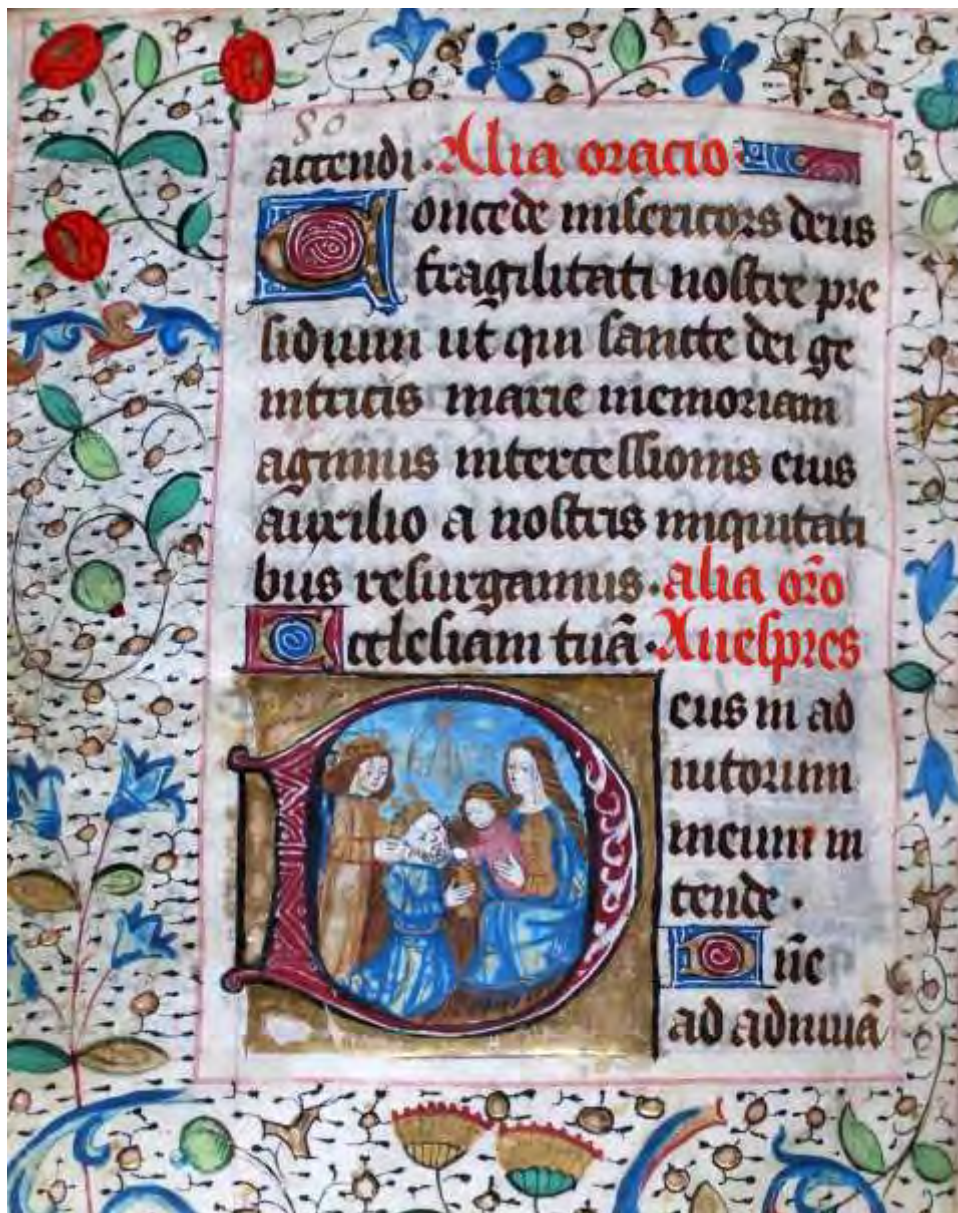 80
attendi. Alia oracio
Concede misericors deus
fragilitati nostre pre
sidium ut qui sancte dei ge
nitricis marie memoriam
agimus intercessionis eius
auxilio a nostris iniquitati
bus resurgamus. alia orõ
Ecclesiam tuã. A vespres
Deus in ad
iutorium
meum in
tende.
Dñe
ad adiuuã